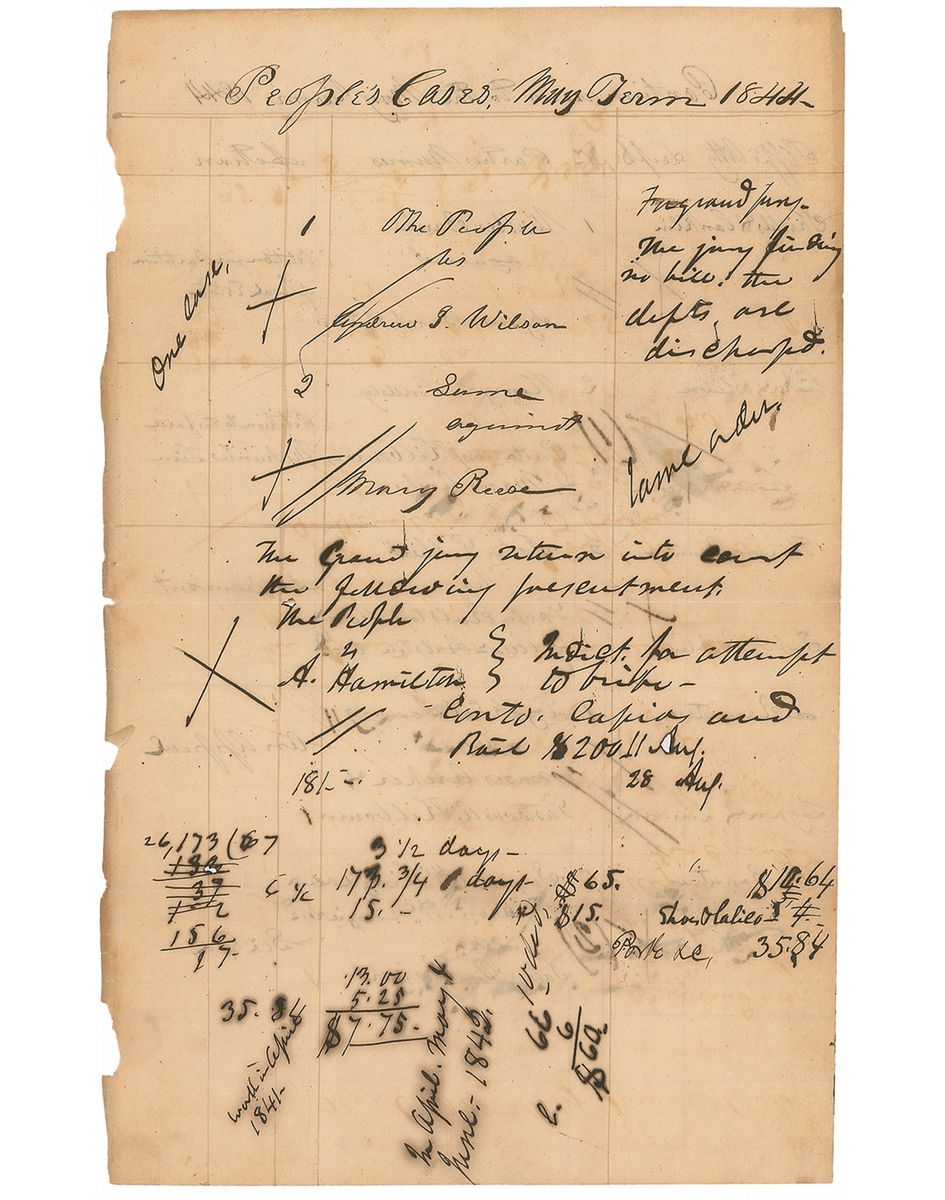 People's Cases, May Term 1844
1 The People
vs
Andrew J. Wilson
One case.
For grand jury
The jury finding
no bill. the
defts. are
discharged.
2 Same
against
Mary Reese
Same order.
The Grand jury return into court
the following presentment.
The People
vs
A. Hamilton } Indict. for attempt
to bribe -
Conto. Capias and
Bail $200 11 Aug.
28 Aug.
181-
26,173 (67
156
17
3 1/2 days -
173. 3/4 days
15. -
$65.
$15.
$10.64
Shoes & Calico
Pork &c, 35.84
13.00
5.25
$7.75.
35.84
work in April
1841-
In April. May &
June. - 1842.
66
6
$60.